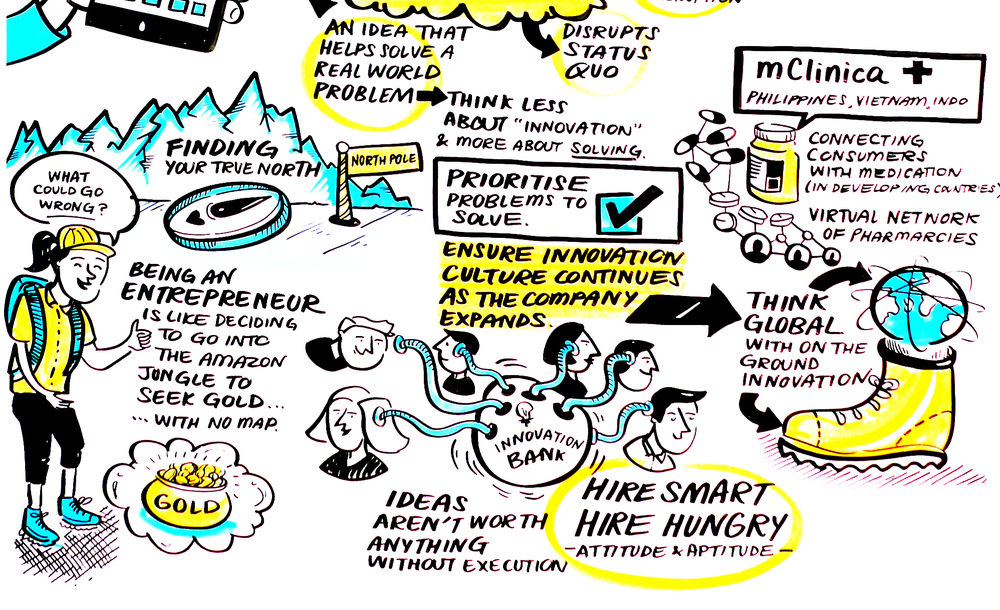 AN IDEA THAT
HELPS SOLVE A
REAL WORLD
PROBLEM
THINK LESS
ABOUT "INNOVATION"
& MORE ABOUT SOLVING.
DISRUPTS
STATUS
QUO
mClinica +
PHILIPPINES, VIETNAM, INDO
CONNECTING
CONSUMERS
WITH MEDICATION
(IN DEVELOPING COUNTRIES)
VIRTUAL NETWORK
OF PHARMARCIES
FINDING
YOUR TRUE NORTH
NORTH POLE
WHAT
COULD GO
WRONG?
PRIORITISE
PROBLEMS TO
SOLVE.
ENSURE INNOVATION
CULTURE CONTINUES
AS THE COMPANY
EXPANDS.
BEING AN
ENTREPRENEUR
IS LIKE DECIDING
TO GO INTO
THE AMAZON
JUNGLE TO
SEEK GOLD...
... WITH NO MAP.
GOLD
THINK
GLOBAL
WITH ON THE
GROUND
INNOVATION
INNOVATION
BANK
IDEAS
AREN'T WORTH
ANYTHING
WITHOUT EXECUTION
HIRE SMART
HIRE HUNGRY
- ATTITUDE & APTITUDE -